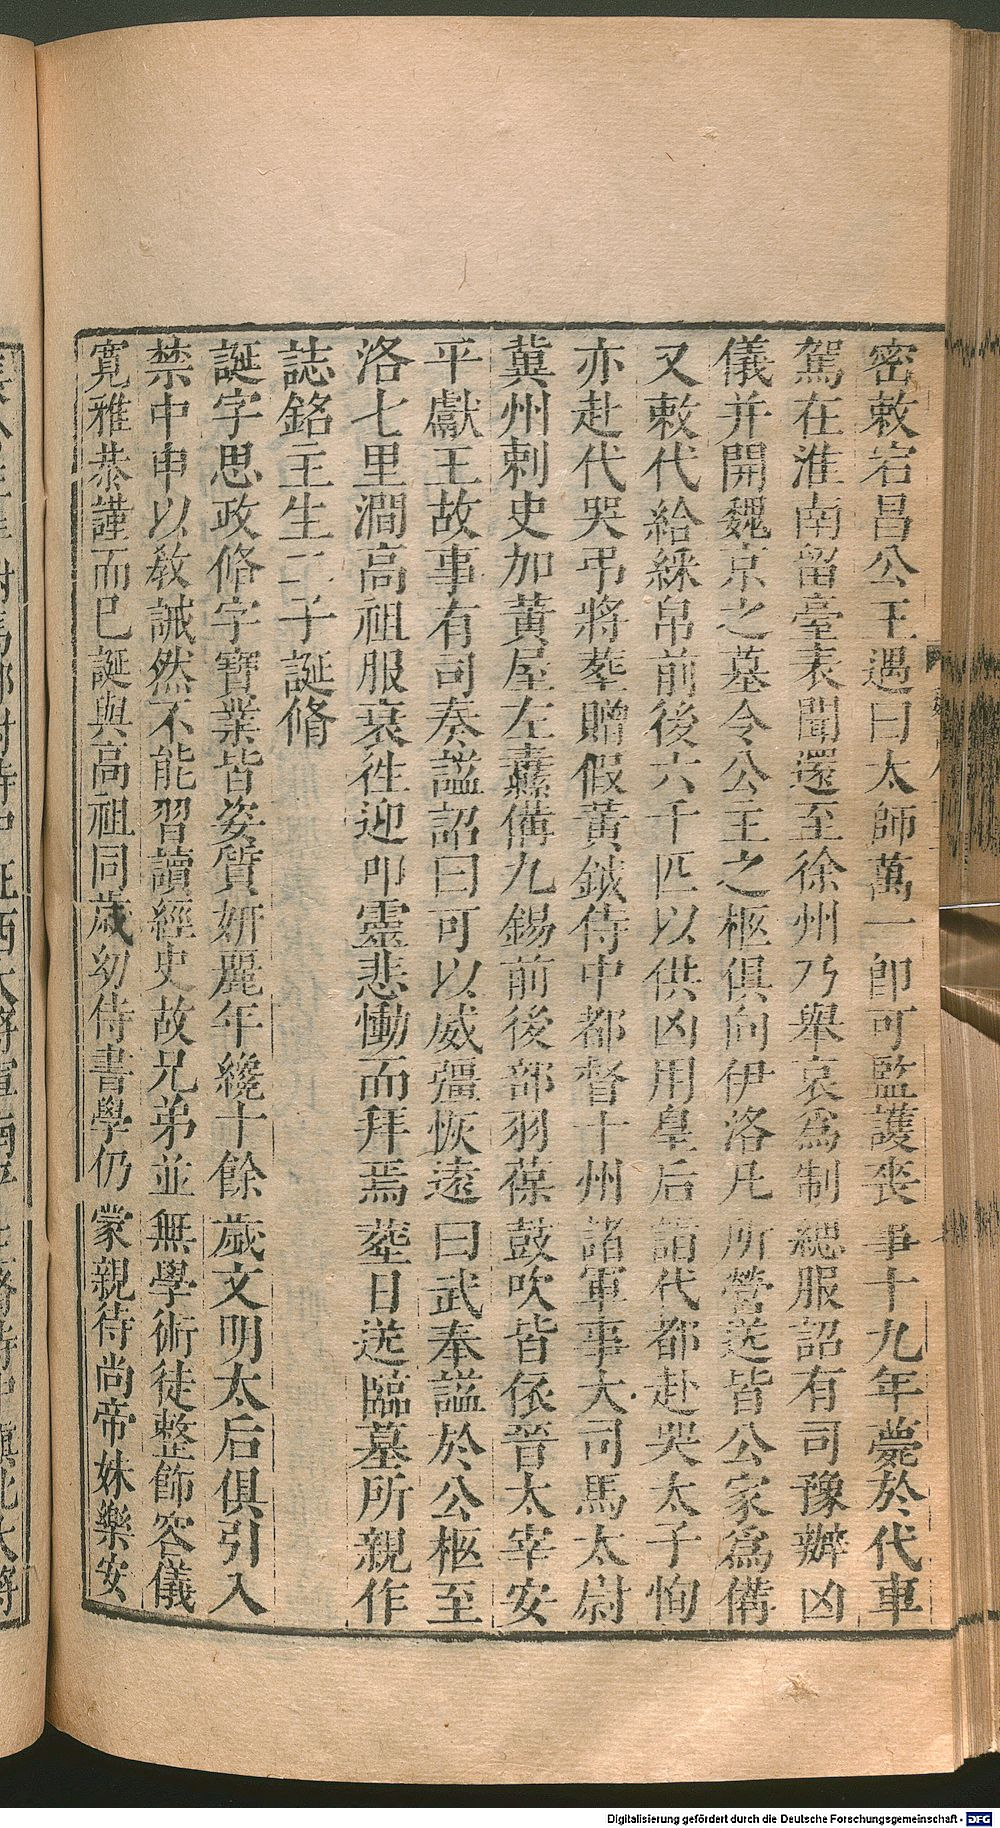 密敕宕昌公王遇曰太師萬一即可監護喪事十九年薨於代車
駕在淮南留臺表聞還至徐州乃舉哀爲制緦服詔有司豫辦凶
儀并開魏京之墓令公主之柩俱向伊洛凡所營送皆公家爲備
又敕代給綵帛前後六千匹以供凶用皇后詣代都赴哭太子恂
亦赴代哭弔將葬贈假黃鉞侍中都督十州諸軍事大司馬太尉
冀州刺史加黃屋左纛備九錫前後部羽葆鼓吹皆依晉太宰安
平獻王故事有司奏謚詔曰可以威彊恢遠曰武奉謚於公柩至
洛七里澗高祖服衰往迎叩靈悲慟而拜焉葬日送臨墓所親作
誌銘主生二子誕脩
誕字思政脩字寶業皆姿質妍麗年纔十餘歲文明太后俱引入
禁中申以敎誡然不能習讀經史故兄弟並無學術徒整飾容儀
寬雅恭謹而已誕與高祖同歲幼侍書學仍蒙親待尚帝妹樂安
Digitalisierung gefördert durch die Deutsche Forschungsgemeinschaft - DFG